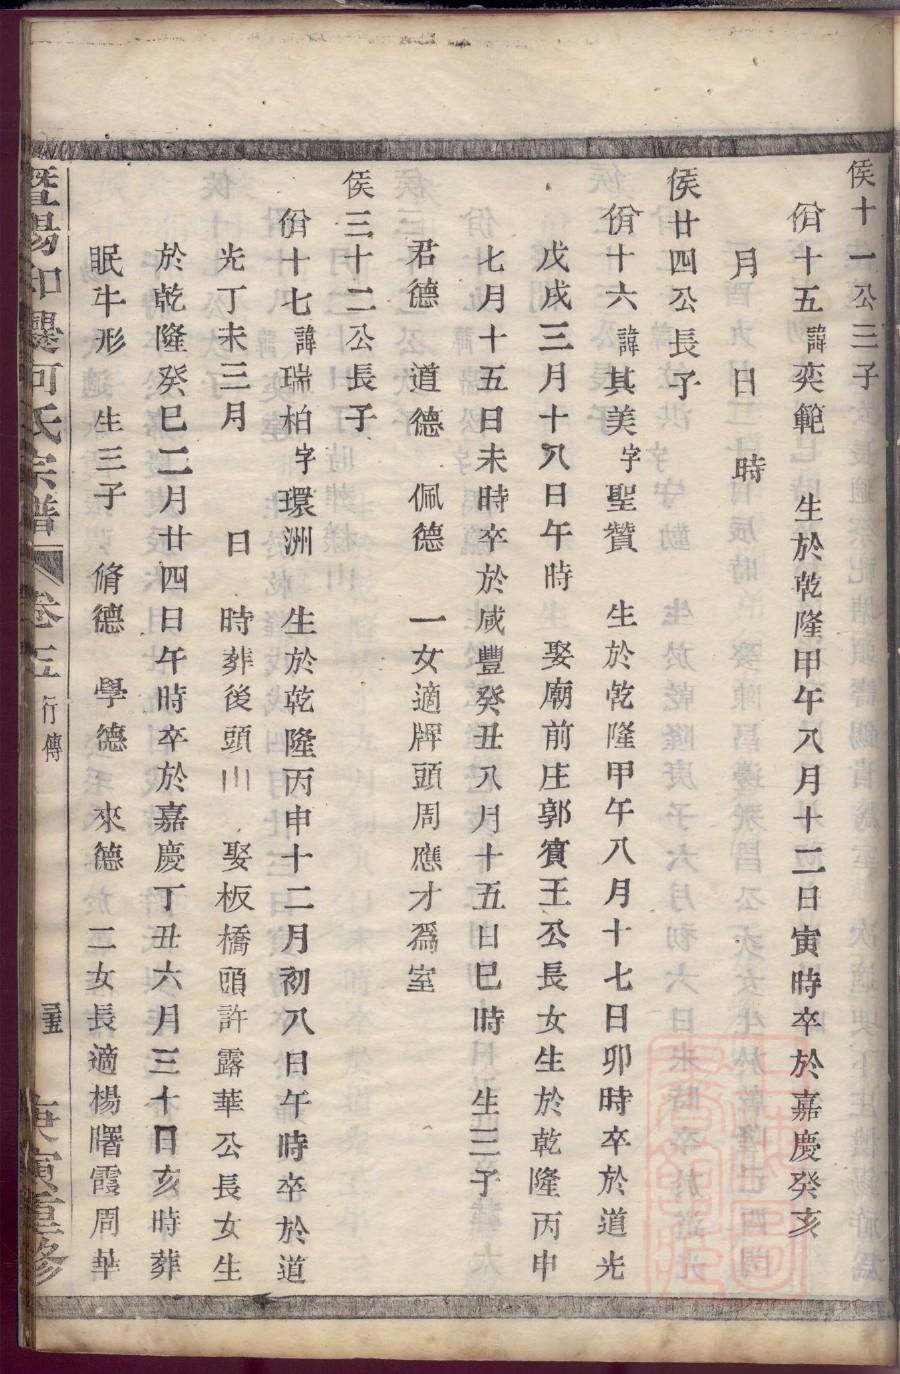 侯十一公三子
佾十五諱奕範 生於乾隆甲午八月十二日寅時卒於嘉慶癸亥
月 日 時
侯廿四公長子
佾十六諱其美字聖贊 生於乾隆甲午八月十七日卯時卒於道光
戊戌三月十八日午時 娶廟前庄郭賓王公長女生於乾隆丙申
七月十五日未時卒於咸豐癸丑八月十五日巳時 生三子
君德 道德 佩德 一女適牌頭周應才爲室
侯三十二公長子
佾十七諱瑞柏字環洲 生於乾隆丙申十二月初八日午時卒於道
光丁未三月 日 時葬後頭山 娶板橋頭許露華公長女生
於乾隆癸巳二月廿四日午時卒於嘉慶丁丑六月三十日亥時葬
眠牛形 生三子 脩德 學德 來德 二女長適楊曙霞周華
暨陽 何氏宗譜 卷 行傳
庚寅重修